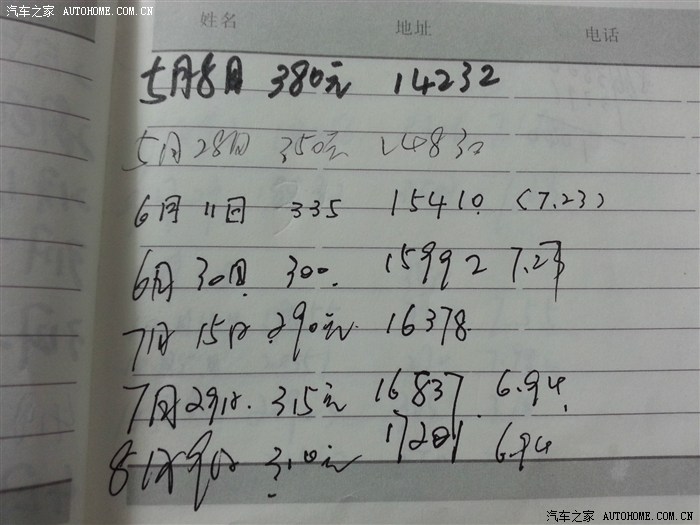 汽车之家 AUTOHOME.COM.CN
姓名 地址 电话
5月8日 380元 14232
5月28日 350元 14830
6月11日 335 15410 (7.23)
6月30日 300 15992 7.23
7月15日 290元 16378
7月29日 315元 16837 6.94
8月9日 310元 17201 6.94
汽车之家 AUTOHOME.COM.CN